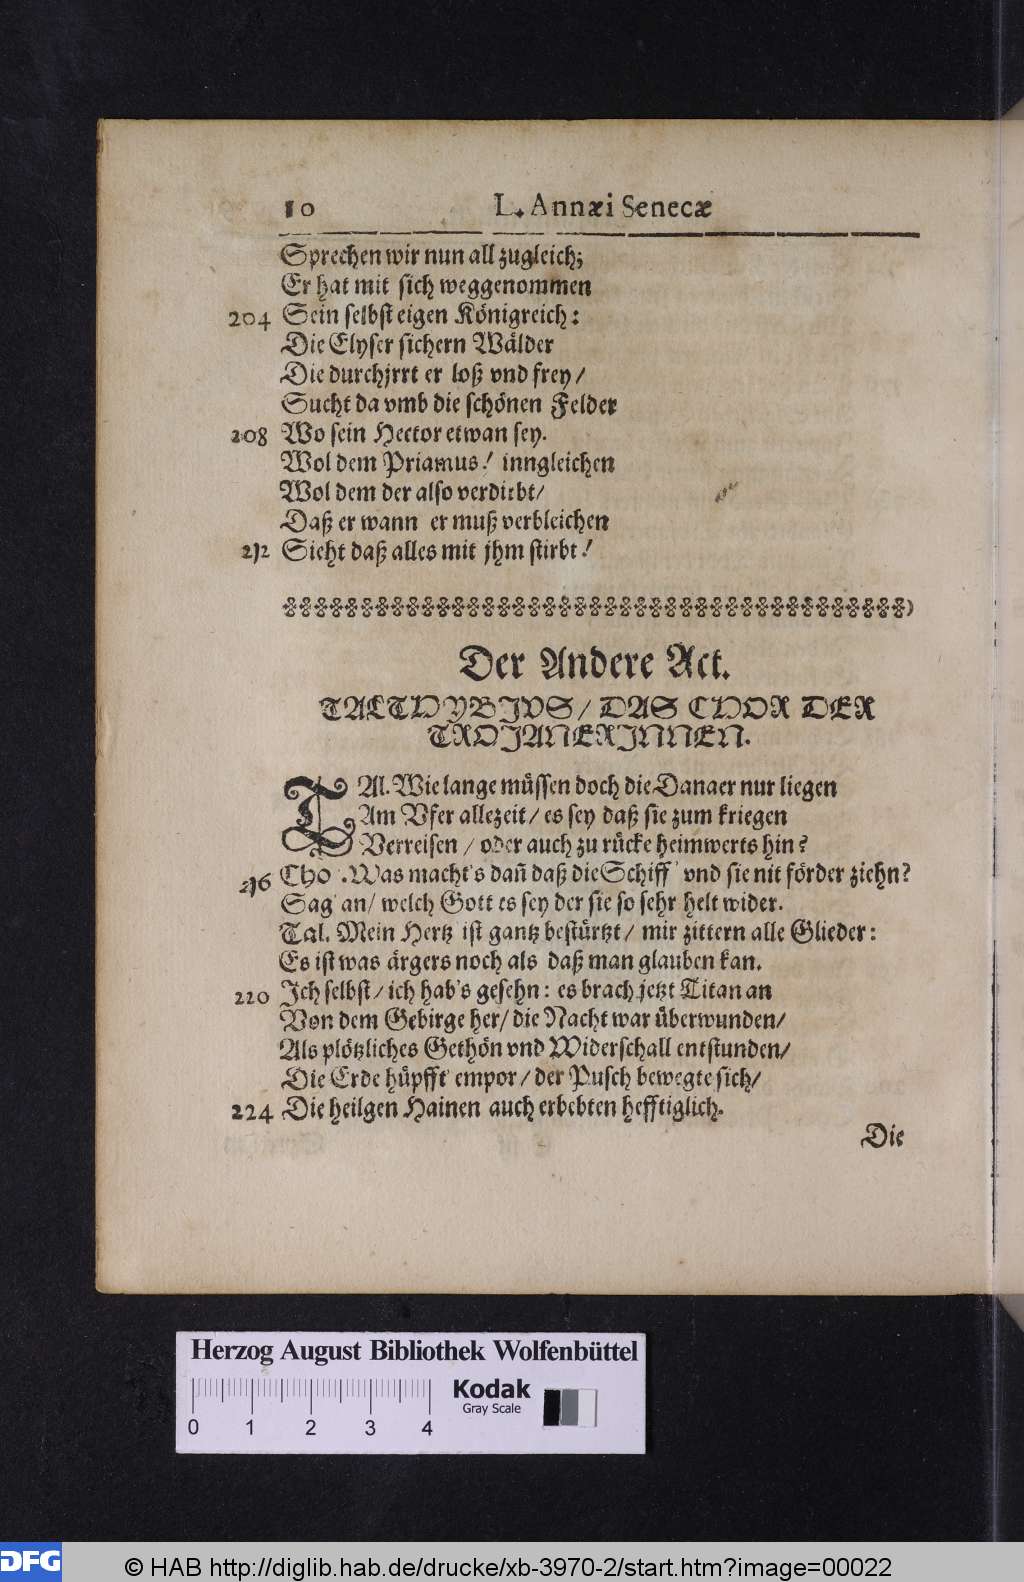 10 L. Annæi Senecæ
Sprechen wir nun all zugleich;
Er hat mit sich weggenommen
204 Sein selbst eigen Königreich:
Die Elyser sichern Wälder
Die durchjrrt er loß vnd frey/
Sucht da vmb die schönen Felder
208 Wo sein Hector etwan sey.
Wol dem Priamus! inngleichen
Wol dem der also verdirbt/
Daß er wann er muß verbleichen
212 Sieht daß alles mit jhm stirbt!
Der Andere Act.
TALTHYBIVS/ DAS CHOR DER
TROJANERINNEN.
TAl. Wie lange müssen doch die Danaer nur liegen
Am Vfer allezeit/ es sey daß sie zum kriegen
Verreisen/ oder auch zu rücke heimwerts hin?
216 Cho. Was macht's dañ daß die Schiff' vnd sie nit förder ziehn?
Sag' an/ welch Gott es sey der sie so sehr helt wider.
Tal. Mein Hertz ist gantz bestürtzt/ mir zittern alle Glieder:
Es ist was ärgers noch als daß man glauben kan.
220 Ich selbst/ ich hab's gesehn: es brach jetzt Titan an
Von dem Gebirge her/ die Nacht war überwunden/
Als plötzliches Gethön vnd Widerschall entstunden/
Die Erde hüpfft' empor/ der Pusch bewegte sich/
224 Die heilgen Hainen auch erbebten hefftiglich.
Die
Herzog August Bibliothek Wolfenbüttel
Kodak
Gray Scale
0 1 2 3 4
DFG © HAB http://diglib.hab.de/drucke/xb-3970-2/start.htm?image=00022